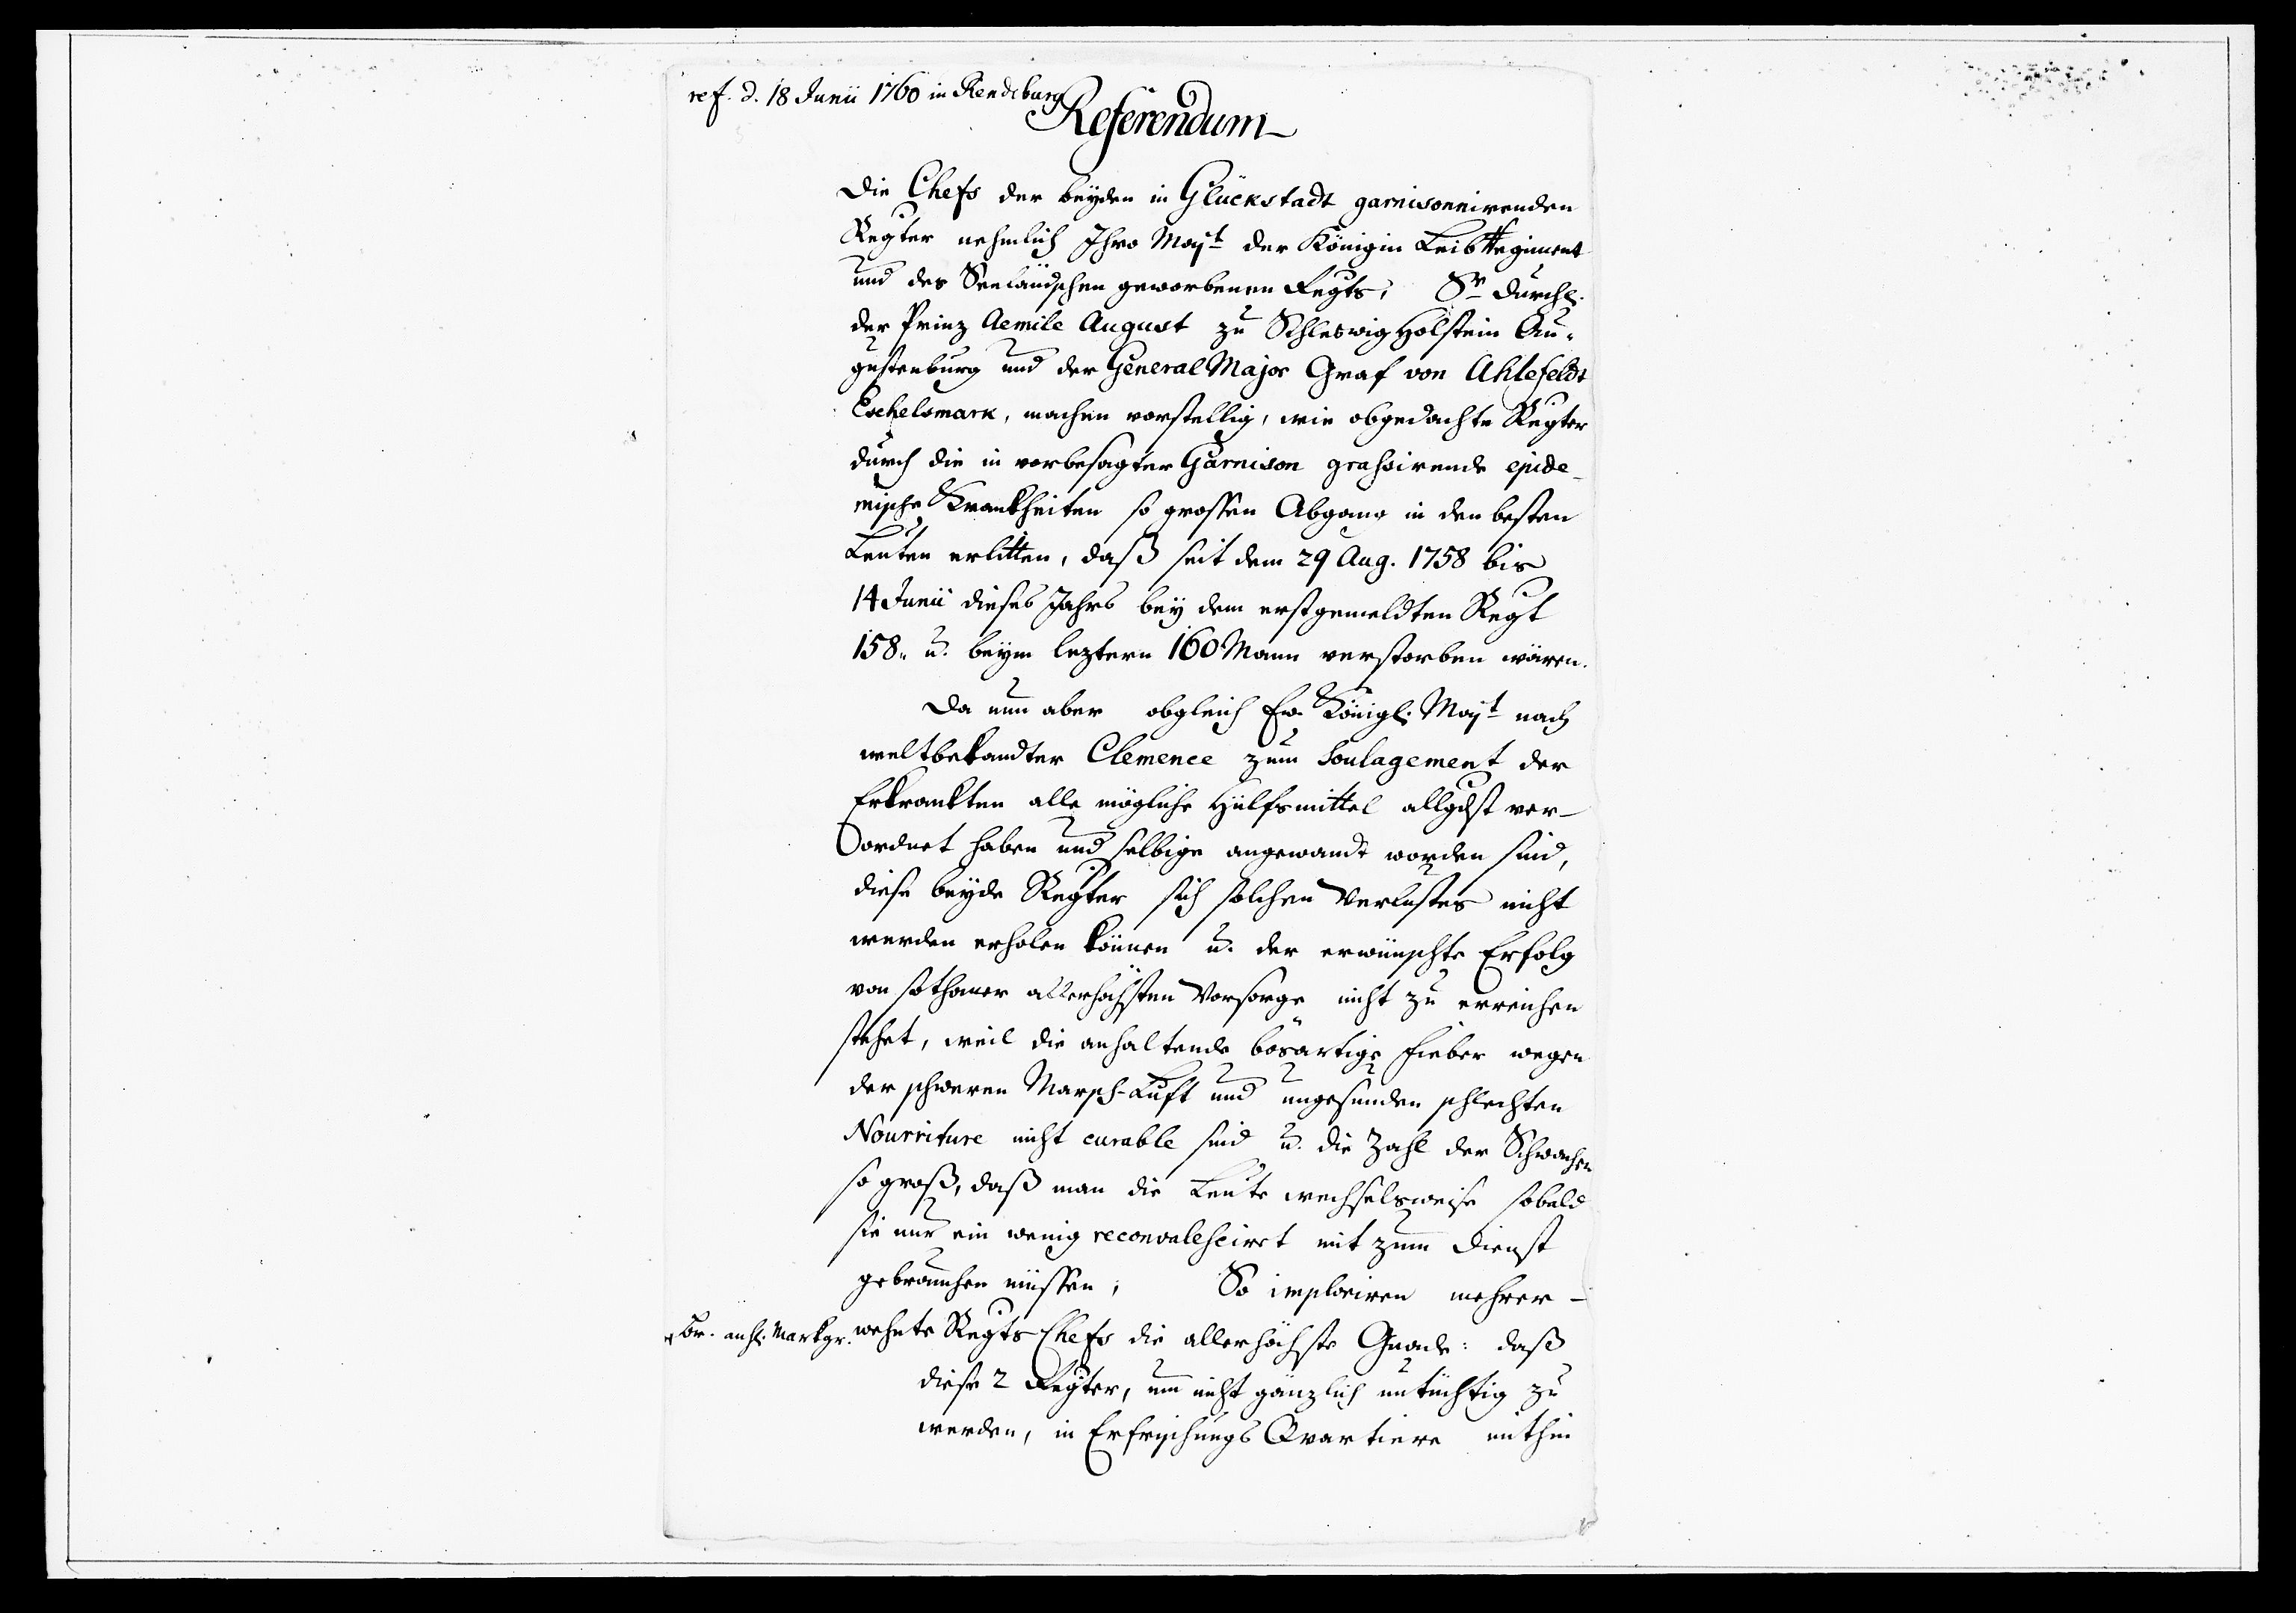 ref. d. 18 Junii 1760 in Rendsburg
Referendum
Die Chefs der beyden in Glückstadt garnisonnirenden
Regter nehmlich Ihro Mayt der Königin LeibRegiment
und des Seeländschen geworbenen Regts, Sr Durchl.
der Prinz Aemile August zu Schleswig Holstein Au-
gustenburg und der General Major Graf von Ahlefeldt
Eschelsmark, machen vorstellig, wie obgedachte Regter
durch die in vorbesagter Garnison grassirende epide-
mische Krankheiten so grossen Abgang in den besten
Leuten erlitten, daß seit dem 29 Aug. 1758 bis
14 Junii dieses Jahrs bey dem erstgemeldten Regt
158„ u. beym leztern 160 Mann verstorben wären.
Da nun aber obgleich Ew. Königl. Mayt nach
weltbekandter Clemence zum Soulagement der
Erkrankten alle mögliche Hülfsmittel allgdst ver-
ordnet haben und selbige angewandt worden sind,
diese beyde Regter sich solchen Verlustes nicht
werden erholen können u. der erwünschte Erfolg
von sothaner allerhöchsten Vorsorge nicht zu erreichen
stehet, weil die anhaltende bösartige Fieber wegen
der schweren Marsch-Luft und ungesunden schlechten
Nourriture nicht curable sind u. die Zahl der Schwachen
so groß, daß man die Leute wechselsweise sobald
sie nur ein wenig reconvallescirct mit zum Dienst
gebrauchen müssen; So imploriren mehrer-
wehnte Regts Chefs die allerhöchste Gnade: daß
diese 2 Regter, um nicht gänzlich untüchtig zu
werden, in Erfrischungs Qvartiere mithin